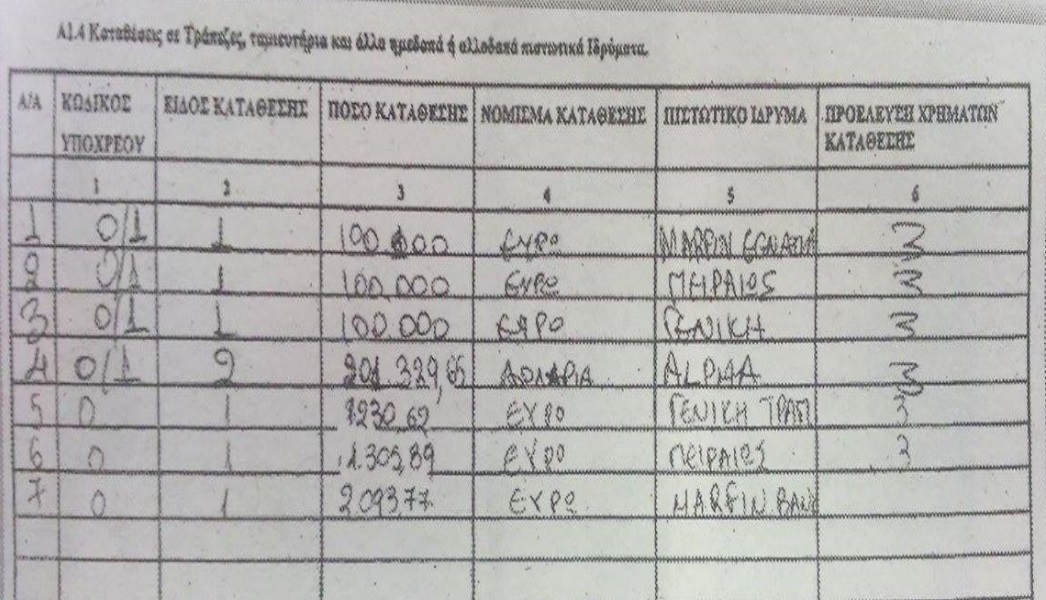 Α1.4 Καταθέσεις σε Τράπεζες, ταμιευτήρια και άλλα ημεδαπά ή αλλοδαπά πιστωτικά Ιδρύματα.
Α/Α ΚΩΔΙΚΟΣ ΥΠΟΧΡΕΟΥ ΕΙΔΟΣ ΚΑΤΑΘΕΣΗΣ ΠΟΣΟ ΚΑΤΑΘΕΣΗΣ ΝΟΜΙΣΜΑ ΚΑΤΑΘΕΣΗΣ ΠΙΣΤΩΤΙΚΟ ΙΔΡΥΜΑ ΠΡΟΕΛΕΥΣΗ ΧΡΗΜΑΤΩΝ ΚΑΤΑΘΕΣΗΣ
1 2 3 4 5 6
1 0/1 1 100.000 ΕΥΡΟ MARFIN EGNATIA 3
2 0/1 1 100.000 ΕΥΡΩ ΠΕΙΡΑΙΟΣ 3
3 0/1 1 100.000 ΕΥΡΟ ΓΕΝΙΚΗ 3
4 0/1 2 201.329,65 ΔΟΛΑΡΙΑ ALPHA 3
5 0 1 1230,62 ΕΥΡΟ ΓΕΝΙΚΗ ΤΡΑΠ 3
6 0 1 1.305,89 ΕΥΡΟ ΠΕΙΡΑΙΩΣ 3
7 0 1 209377 ΕΥΡΩ MARFIN BANK